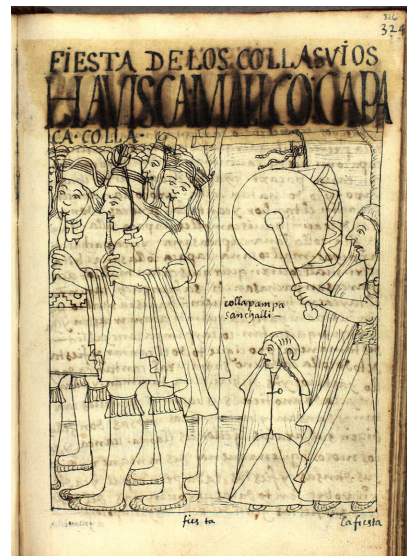 326
324
FIESTA DELOS COLLASVIOS
HAVISCAMALLCO·CAPA
CA·COLLA·
collapampa
sanchalli
fiesta
la fiesta